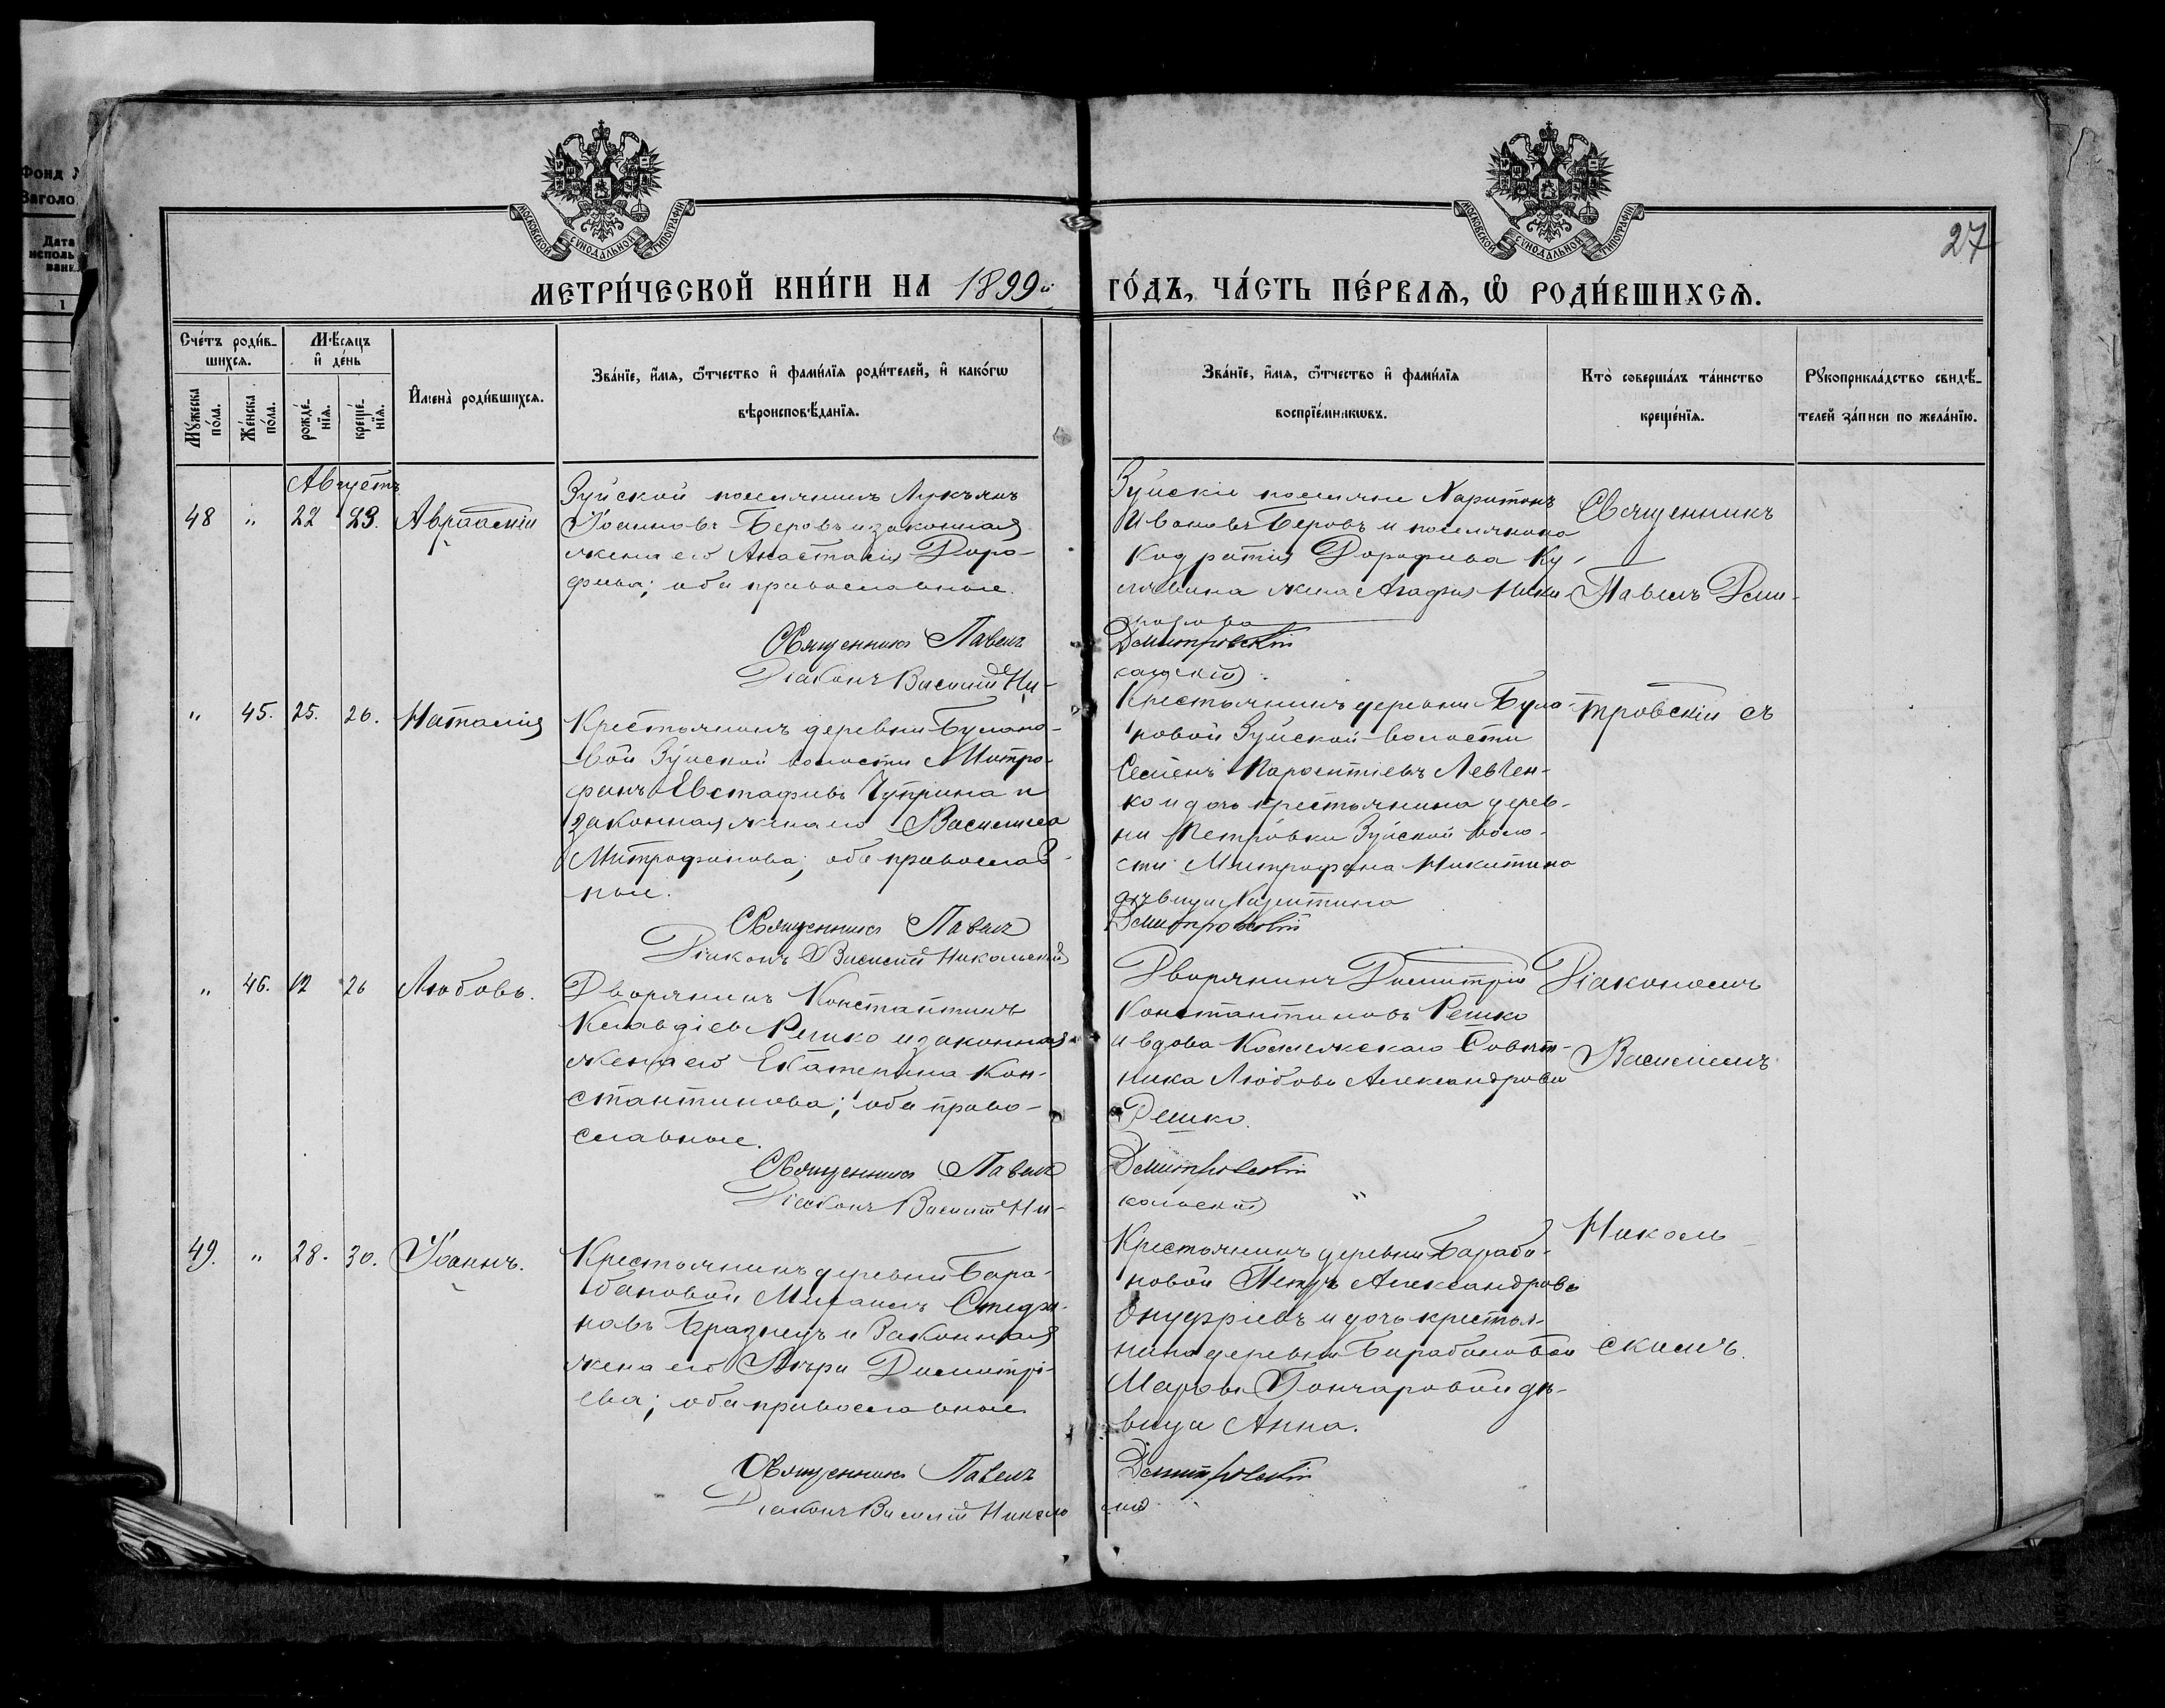 Фонд
Заголо
Дата
исполь
ван
1
МОСКОВСКОЙ СѴНОДАЛЬНОЙ ТИПОГРАФІИ
МОСКОВСКОЙ СѴНОДАЛЬНОЙ ТИПОГРАФІИ
27
МЕТРИ́ЧЕСКОЙ КНИ́ГИ НА 1899й ГО́ДЪ, ЧА́СТЬ ПЕ́РВАѦ, Ѿ РОДИ́ВШИХСѦ.
Сче́тъ роди́в-
шихсѧ.
Мꙋ́жеска по́ла.
Же́нска по́ла.
Мѣ́сѧцъ
и҆ де́нь
рожде́-
нїѧ.
креще́-
нїѧ.
И҆мена̀ роди́вшихсѧ.
Зва́нїе, и҆́мѧ, ѻ҆́тчество и҆ фами́лїѧ роди́телей, и҆ како́гѡ
вѣроисповѣ́данїѧ.
Зва́нїе, и҆́мѧ, ѻ҆́тчество и҆ фами́лїѧ
воспрїе́мникѡвъ.
Кто̀ соверша́лъ та́инство
креще́нїѧ.
Рꙋкоприкла́дство свидѣ́-
телей за́писи по жела́нїю.
Августъ
48 " 22 23. Авраамій
Зуйской поселянинъ Лукьянъ
Іоанновъ Беровъ и законная
жена его Анастасія Доро-
феева; оба православные.
Священникъ Павелъ
Діаконъ Василій Ни-
Зуйскіе поселяне Харитонъ
Ивановъ Беровъ и поселянина
Кодратія Дорофеева Ку
жена Агафія Ники
форова
Дмитровскій
Священникъ
Павелъ Дми-
" 45. 25. 26. Наталія
Крестьянинъ деревни Булано-
вой Зуйской волости Митро-
фанъ Евстафьевъ Чуприна и
законная жена его Василиса
Митрофанова; оба православ-
ные.
Священникъ Павелъ
Діаконъ Василій Никольскій
Крестьянинъ деревни Була-
новой Зуйской волости
Семенъ Левчен-
ко и дочь крестьянина дерев-
ни Петровки Зуйской воло-
сти Митрофана Никитина
дѣвица
Дмитровскій
тровскій съ
" 46. 12 26 Любовь.
Дворянинъ Константинъ
Клавдіевъ Решко и законная
жена его Екатерина Кон-
стантинова; оба право-
славные.
Священникъ Павелъ
Діаконъ Василій Ни-
Дворянинъ Димитрій
Константиновъ Решко
и вдова Коллежскаго Совѣт-
ника Любовь Александрова
Решко.
Дмитровскій
кольскій "
Діакономъ
Василіемъ
49. " 28. 30. Іоаннъ.
Крестьянинъ деревни Бара-
бановой Михаилъ Стефа-
новъ и законная
жена его Димитрі-
ева; оба православные
Священникъ Павелъ
Діаконъ Василій Николь
Крестьянинъ деревни Бараба-
новой Петръ Александровъ
Онуфріевъ и дочь крестья-
нина деревни Барабановой
Гончаровой дѣ-
вица Анна.
Дмитровскій
Николь
скимъ.